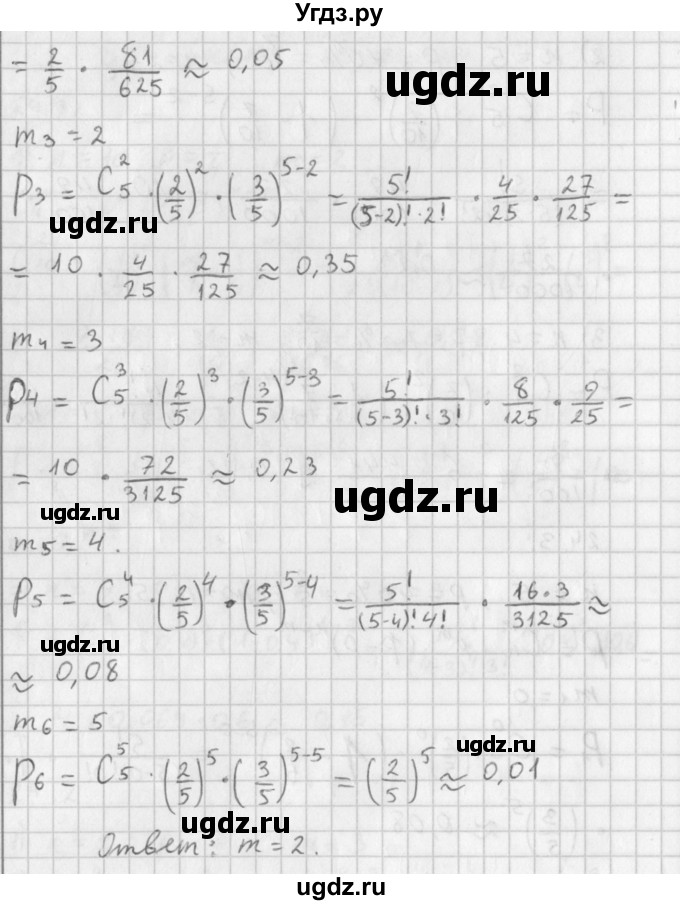 Угдз.ру
= 2/5 · 81/625 ≈ 0,05
ugdz.ru
m₃ = 2
P₃ = C₅² · (2/5)² · (3/5)⁵⁻² = 5!/((5-2)!·2!) · 4/25 · 27/125 =
ugdz.ru
= 10 · 4/25 · 27/125 ≈ 0,35
m₄ = 3
P₄ = C₅³ · (2/5)³ · (3/5)⁵⁻³ = 5!/((5-3)!·3!) · 8/125 · 9/25 =
= 10 · 72/3125 ≈ 0,23
ugdz.ru
ugdz.ru
m₅ = 4.
P₅ = C₅⁴ · (2/5)⁴ · (3/5)⁵⁻⁴ = 5!/((5-4)!4!) · 16·3/3125 ≈
≈ 0,08
ugdz.ru
m₆ = 5
ugdz.ru
P₆ = C₅⁵ · (2/5)⁵ · (3/5)⁵⁻⁵ = (2/5)⁵ ≈ 0,01
ugdz.ru
Ответ: m = 2.
ugdz.ru
ugdz.ru